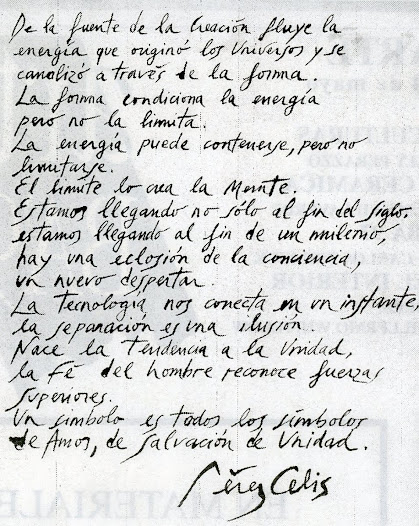 De la fuente de la Creación fluye la
energía que originó los Universos y se
canalizó a través de la forma.
La forma condiciona la energía
pero no la limita.
La energía puede contenerse, pero no
limitarse.
El limite lo crea la Mente.
Estamos llegando no sólo al fin del siglo,
estamos llegando al fin de un milenio,
hay una eclosión de la conciencia,
un nuevo despertar.
La tecnología nos conecta en un instante,
la separación es una ilusión.
Nace la Tendencia a la Unidad,
la Fé del hombre reconoce fuerzas
superiores.
Un símbolo es todos los símbolos
de Amor, de Salvación de Unidad.
Pérez Celis
EN MATERIALE